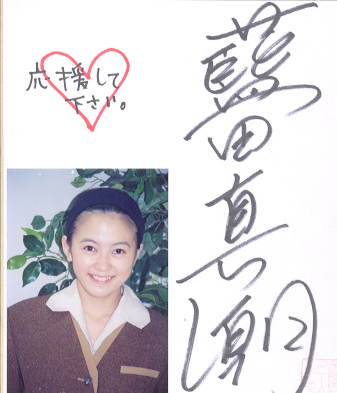 応援して
下さい。
藍田真潮